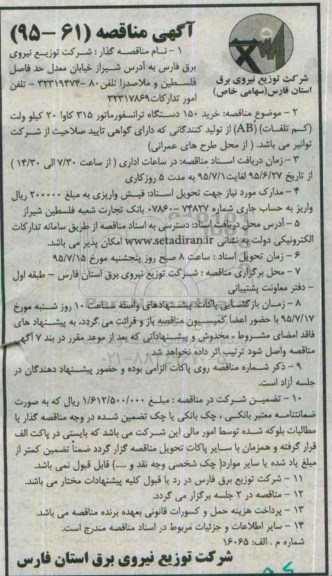 آگهی مناقصه (۶۱ – ۹۵)
شرکت توزیع نیروی برق
استان فارس(سهامی خاص)
۱ – نام مناقصه گذار : شرکت توزیع نیروی
برق فارس به آدرس شیراز خیابان معدل حد فاصل
فلسطین و ملاصدرا تلفن ۸۰ – ۳۲۳۱۹۴۷۴ – تلفن
امور تدارکات ۳۲۳۱۷۸۶۹
۲ – موضوع مناقصه: خرید ۱۵۰ دستگاه ترانسفورماتور ۳۱۵ کاوا ۲۰ کیلو ولت
(کم تلفات) (AB) از تولید کنندگانی که دارای گواهی تایید صلاحیت از شرکت
توانیر می باشد. ( از محل طرح های عمرانی)
۳ – زمان دریافت اسناد مناقصه: در ساعات اداری ( از ساعت ۷/۳۰ الی ۱۴/۳۰ )
از تاریخ ۹۵/۶/۲۷ لغایت ۹۵/۷/۱ به مدت ۵ روزکاری
۴ – مدارک مورد نیاز جهت تحویل اسناد: فیش واریزی به مبلغ ۲۰۰۰۰۰ ریال
واریز به حساب جاری شماره ۷۴۸۲۷ -۰۷۸۶۰ بانک تجارت شعبه فلسطین شیراز
۵ – آدرس محل دریافت اسناد: دسترسی به اسناد مناقصه از طریق سامانه تدارکات
الکترونیکی دولت به نشانی www.setadiran.ir امکان پذیر می باشد.
۶ – زمان تحویل اسناد : ساعت ۸ صبح روز پنجشنبه مورخ ۹۵/۷/۱۵
۷ – محل برگزاری مناقصه : شرکت توزیع نیروی برق استان فارس – طبقه اول
– دفتر معاونت پشتیبانی
۸ – زمان بازگشایی پاکات: پیشنهادهای واصله ساعت ۱۰ روز شنبه مورخ
۹۵/۷/۱۷ با حضور اعضا کمیسیون مناقصه باز و قرائت می گردد، به پیشنهاد های
فاقد امضای مشروط ، مخدوش و پیشنهاداتی که بعد از موعد مقرر در بند ۷ آگهی
مناقصه واصل شود ترتیب اثر داده نخواهد شد .
۹ – ذکر شماره مناقصه روی پاکات الزامی بوده و حضور پیشنهاد دهندگان در
جلسه آزاد است.
۱۰ – تضمین شرکت در مناقصه : مبلغ ۱/۶۱۲/۵۰۰/۰۰۰ ریال که به صورت
ضمانتنامه معتبر بانکی ، چک بانکی یا چک تضمین شده در وجه مناقصه گذار یا
مطالبات بلوکه شده توسط امور مالی این شرکت می باشد که بایستی در پاکت الف
قرار گرفته و همزمان با سایر پاکات تحویل مناقصه گزار گردد ضمناً تضمین کمتر از
مبلغ یاد شده یا سایر موارد( چک شخصی وجه نقد و ....) قابل قبول نمی باشد.
۱۱ – شرکت توزیع برق فارس در رد یا قبول کلیه پیشنهادات مختار می باشد.
۱۲ – مناقصه در ۲ جلسه برگزار می گردد.
۱۳ – پرداخت هزینه حمل و کسورات قانونی بعهده برنده مناقصه می باشد.
۱۴ – سایر اطلاعات و جزئیات مربوط در اسناد مناقصه مندرج است.
شماره م . الف: ۱۶۰۶۵
شرکت توزیع نیروی برق استان فارس